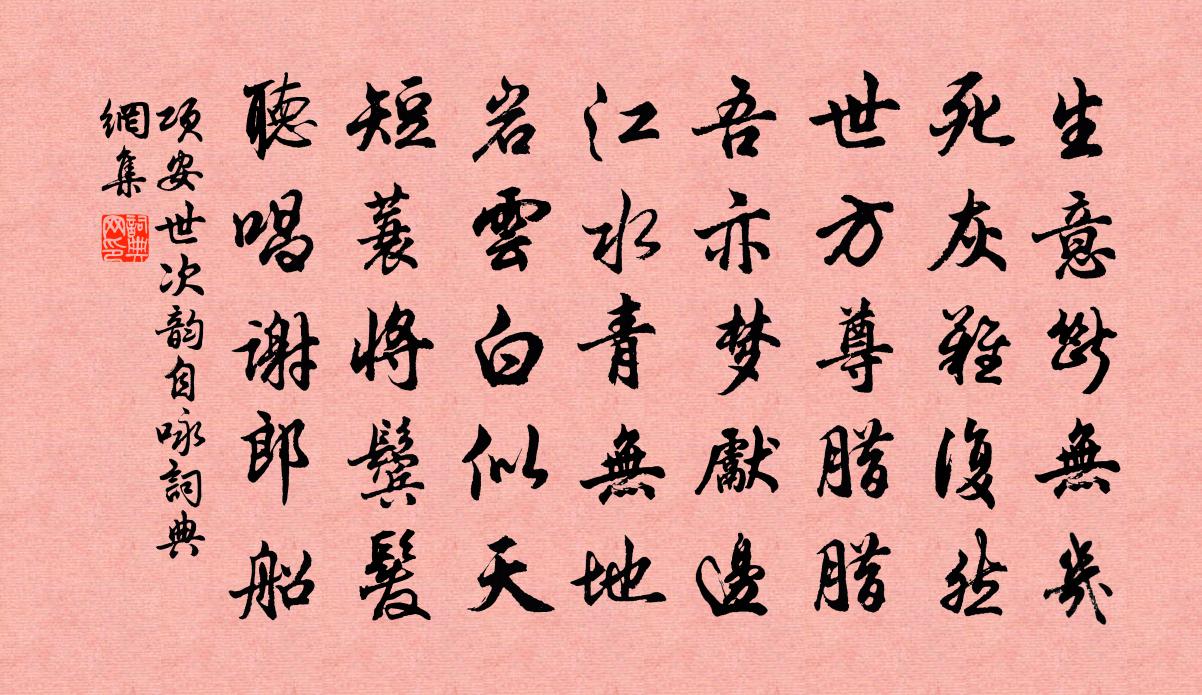 生意斷無幾
死灰難復然
世方尊腊腊
吾亦梦獻邊
江水青無地
岩雲白似天
短蓑將鬢髮
聽唱謝郎船
項安世次韵自咏詞典
網集
詞典
网印